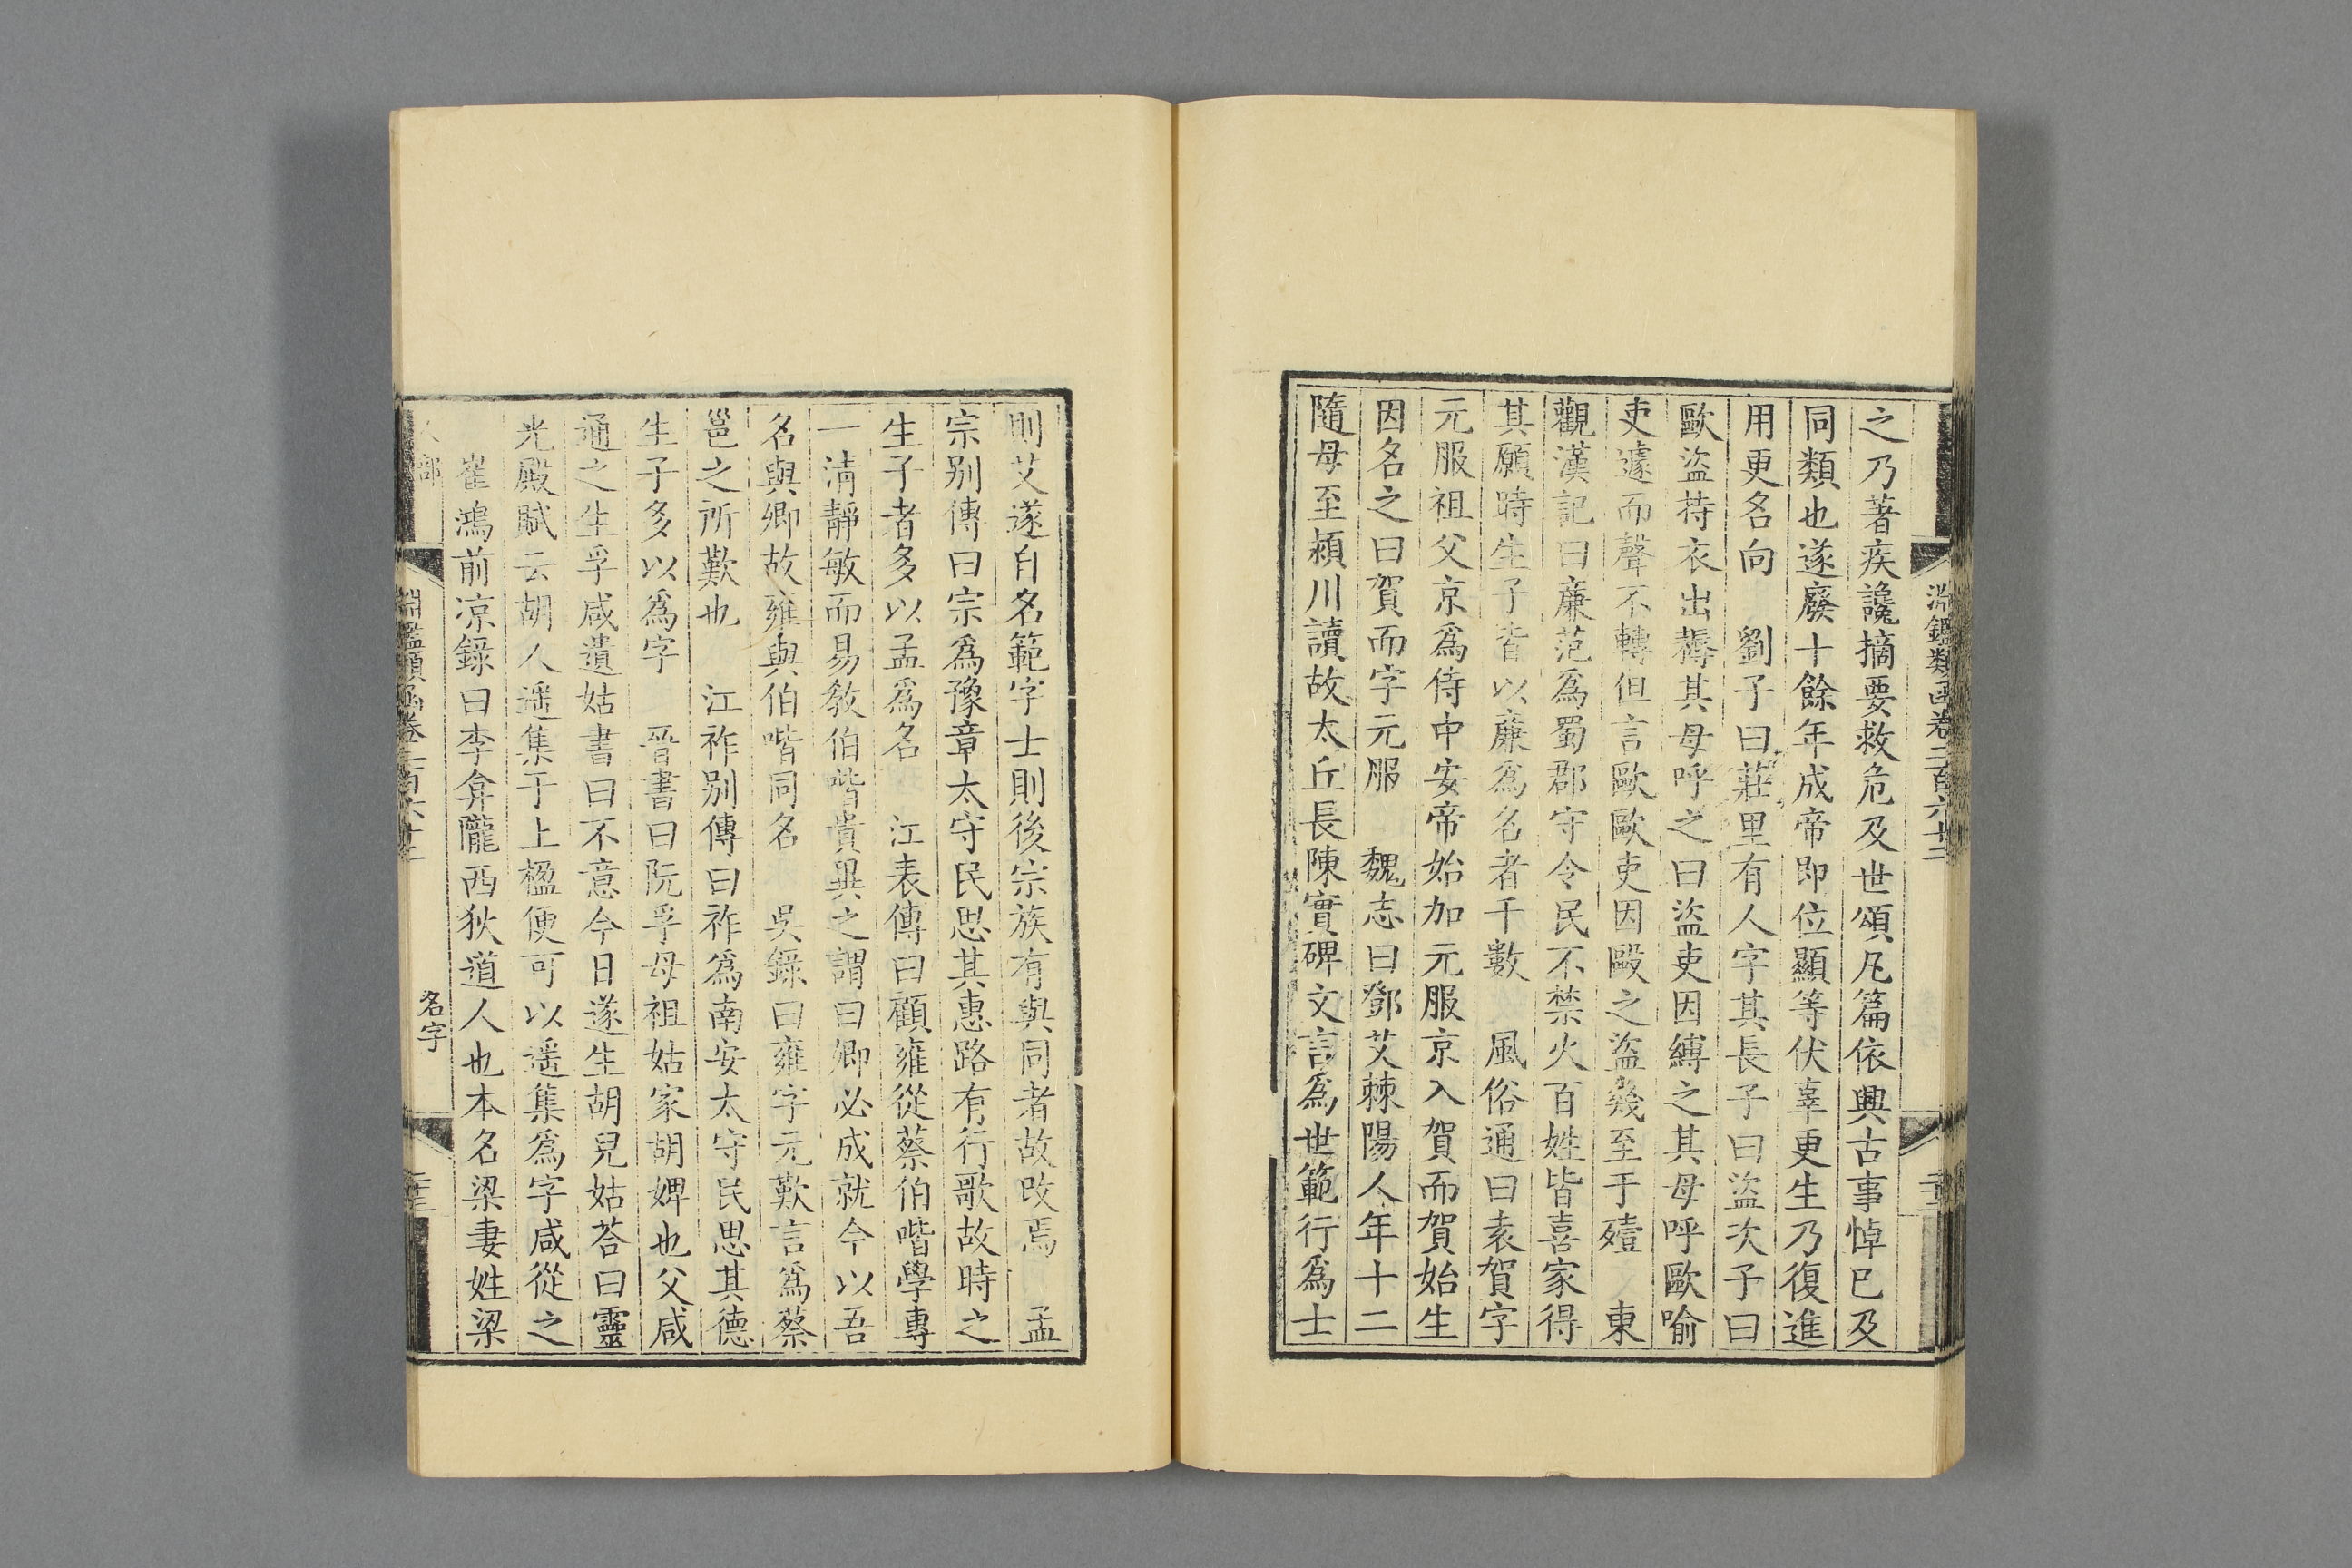 淵鑑類函卷二百六十二
之乃著疾讒摘要救危及世頌凡篇依興古事悼已及
同類也遂廢十餘年成帝即位顯等伏辜更生乃復進
用更名向　劉子曰莊里有人字其長子曰盜次子曰
歐盜持衣出耨其母呼之曰盜吏因縛之其母呼歐喻
吏遽而聲不轉但言歐歐吏因毆之盜幾至于殪　東
觀漢記曰廉范爲蜀郡守令民不禁火百姓皆喜家得
其願時生子皆以廉爲名者千數　風俗通曰袁賀字
元服祖父京爲侍中安帝始加元服京入賀而賀始生
因名之曰賀而字元服　魏志曰鄧艾棘陽人年十二
隨母至潁川讀故太丘長陳實碑文言爲世範行爲士
則艾遂自名範字士則後宗族有與同者故改焉　孟
宗别傳曰宗爲豫章太守民思其惠路有行歌故時之
生子者多以孟爲名　江表傳曰顧雍從蔡伯喈學專
一清靜敏而易教伯喈貴異之謂曰卿必成就今以吾
名與卿故雍與伯喈同名　吳錄曰雍字元歎言爲蔡
邕之所歎也　江祚别傳曰祚爲南安太守民思其德
生子多以爲字　晉書曰阮孚母祖姑家胡婢也父咸
通之生孚咸遺姑書曰不意今日遂生胡兒姑荅曰靈
光殿賦云胡人遥集于上楹便可以遥集爲字咸從之
崔鴻前凉錄曰李弇隴西狄道人也本名梁妻姓梁
淵鑑類函卷二百六十二
名字